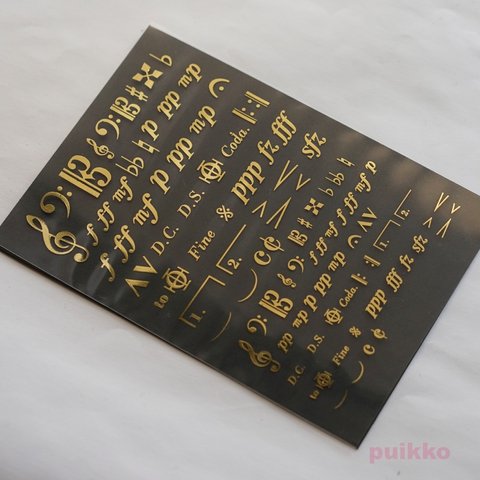 f ff mf ♭♭ ♮ p pp mp
f ff mf p pp mp
D.C. D.S. Coda.
to Fine ppp fz fff sfz
1. 2.
f ff mf f ff mf p
pp mp p pp mp
D.C. D.S. Coda. 1. 2.
to Fine ppp fff fz sfz
puikko